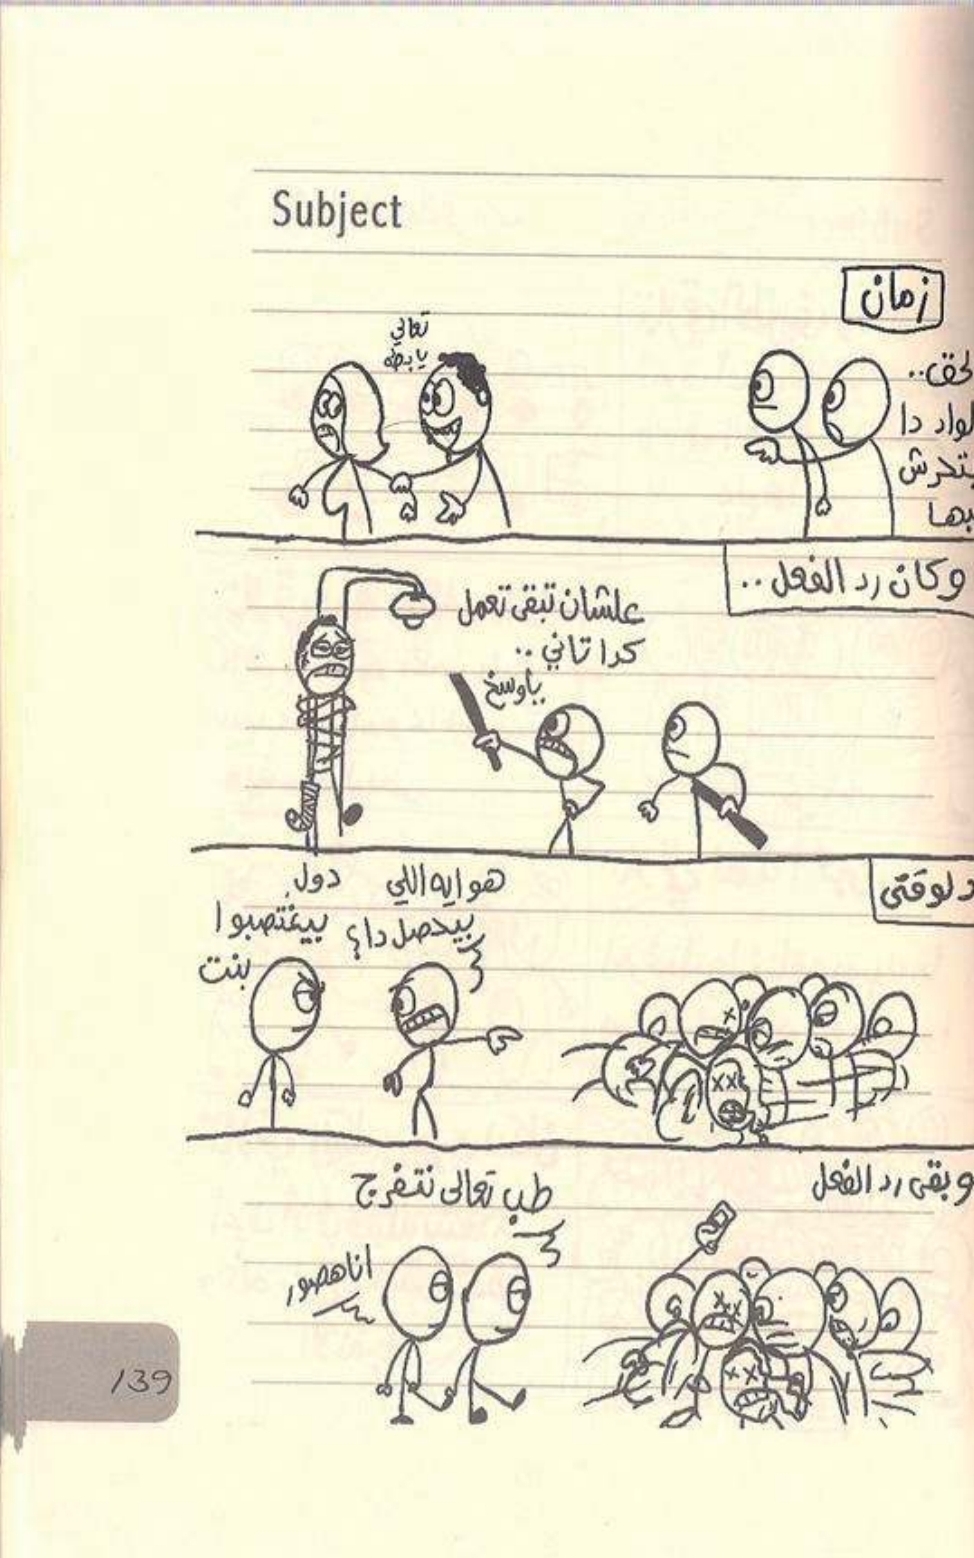 Subject
زمان
لحق..
لواد دا
بتحرش
بها
تعالي
يا بطه
وكان رد الفعل..
علشان تبقى تعمل
كدا تاني..
ياوسخ
دلوقتى
هو ايه اللي
بيحصل دا؟
دول
بيغتصبوا
بنت
وبقى رد الفعل
طب تعالى نتفرج
انا هصور
139